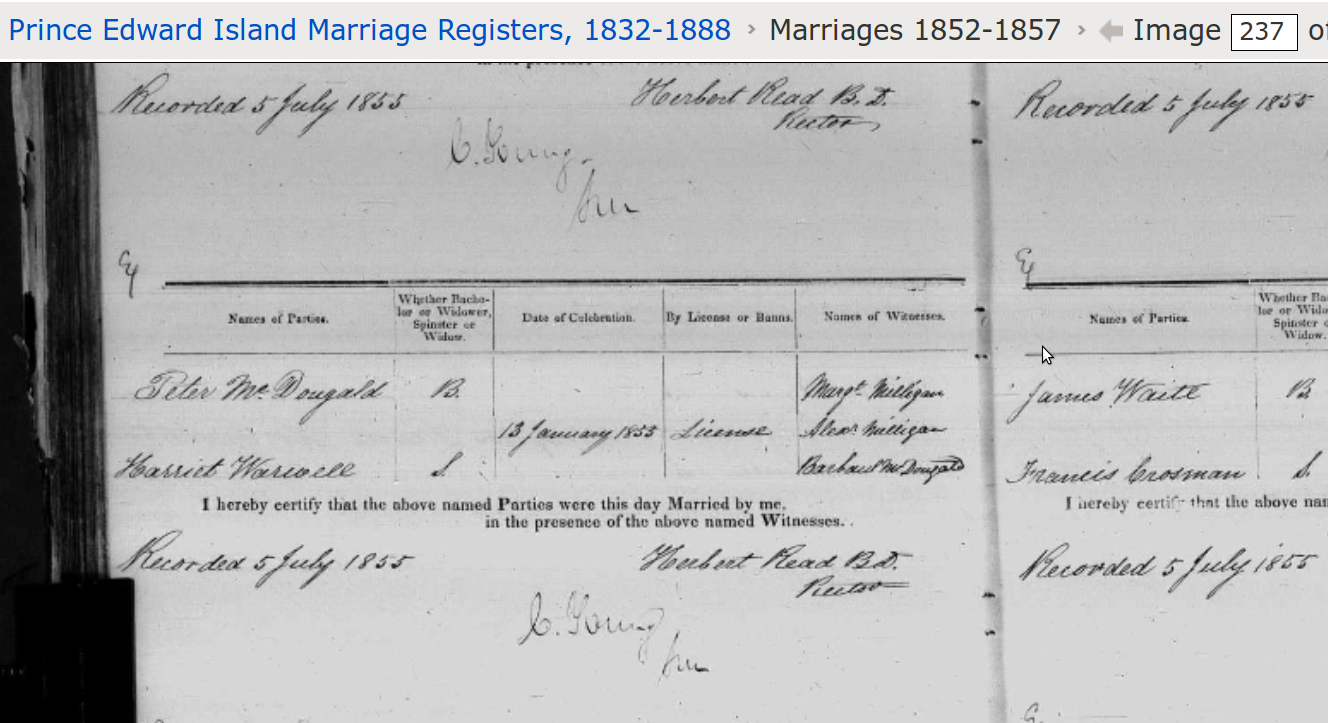 Prince Edward Island Marriage Registers, 1832-1888 › Marriages 1852-1857 › Image 237 of
in the presence
Recorded 5 July 1855
Herbert Read B. D.
Rector
C. Young
Ex
Names of Parties.
Whether Bacho-
lor or Widower,
Spinster or
Widow.
Date of Celebration.
By License or Banns.
Names of Witnesses.
Peter McDougald
B.
Margt. Milligan
13 January 1853
License
Alexr Milligan
Harriet Warwell
S.
McDougald
I hereby certify that the above named Parties were this day Married by me,
in the presence of the above named Witnesses.
Recorded 5 July 1855
Herbert Read B.D.
Rector
C. Young
Recorded 5 July 1855
Ex
Names of Parties.
Whether Ba
lor or Wido
Spinster o
Widow.
James Waite
B
Francis Crosman
S.
I hereby certify that the above nam
Recorded 5 July 1855